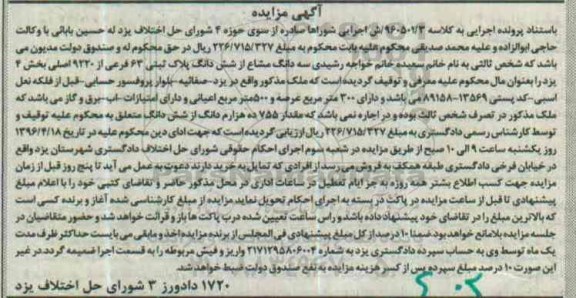 آگهی مزایده
باستناد پرونده اجرایی به کلاسه 960502/3/ش اجرایی شوراها صادره از سوی حوزه 4 شورای حل اختلاف یزد له حسین بابائی با وکالت
حاجی ابوالزاده و علیه محمد صدیقی محکوم علیه بابت محکوم به مبلغ 226/715/327 ریال در حق محکوم له و صندوق دولت مدیون می
باشد که شخص ثالثی به نام خانم سعیده خانم خواجه رشیدی سه دانگ مشاع از شش دانگ پلاک ثبتی 63 فرعی از 9220 اصلی بخش 4
یزد را بعنوان مال محکوم علیه معرفی و توقیف گردیده است که ملک مذکور واقع در یزد-صفائیه-بلوار پروفسور حسابی-قبل از فلکه نعل
اسبی-کد پستی 13569-89158 می باشد و دارای 300 متر مربع عرصه و 500متر مربع اعیانی و دارای امتیازات -اب-برق و گاز می باشد که
ملک مذکور در تصرف شخص ثالث بوده و در اجاره نمی باشد که مقدار 755 ده هزارم دانگ از شش دانگ متعلق به محکوم علیه توقیف و
توسط کارشناس رسمی دادگستری به مبلغ 226/715/327 ریال ارزیابی گردیده است که جهت ادای دین محکوم علیه در تاریخ 1396/4/18
روز یکشنبه ساعت 9 الی 10 صبح از طریق مزایده در شعبه سوم اجرای احکام حقوقی شورای حل اختلاف دادگستری شهرستان یزد واقع
در خیابان فرخی دادگستری طبقه همکف به فروش می رسد از افرادی که تمایل به خرید دارند دعوت به عمل می آید تا پنج روز قبل از زمان
مزایده جهت کسب اطلاع بیشتر همه روزه به جز ایام تعطیل در ساعات اداری در محل مذکور حاضر و تقاضای کتبی خود را با اعلام مبلغ
پیشنهادی تا قبل از ساعت مزایده در پاکت در بسته به اجرای احکام تحویل نماید.مزایده از مبلغ کارشناسی شده آغاز و برنده کسی است
که بالاترین مبلغ را در تقاضای خود پیشنهاد داده باشد و راس ساعت تعیین شده درب پاکت ها باز و قرائت خواهد شد و حضور متقاضیان در
جلسه مزایده بلامانع خواهد بود ضمنا 10 درصد از کل مبلغ پیشنهادی فی المجلس از برنده مزایده اخذ و مابقی می بایست حداکثر ظرف مدت
یک ماه توسط وی به حساب سپرده دادگستری یزد به شماره 2171295806004 واریز و فیش مربوطه را به قسمت اجرا ضمیمه گردد.در غیر
این صورت 10 درصد مبلغ سپرده پس از کسر هزینه مزایده به نفع صندوق دولت ضبط خواهد شد.
1720 دادورز 3 شورای حل اختلاف یزد